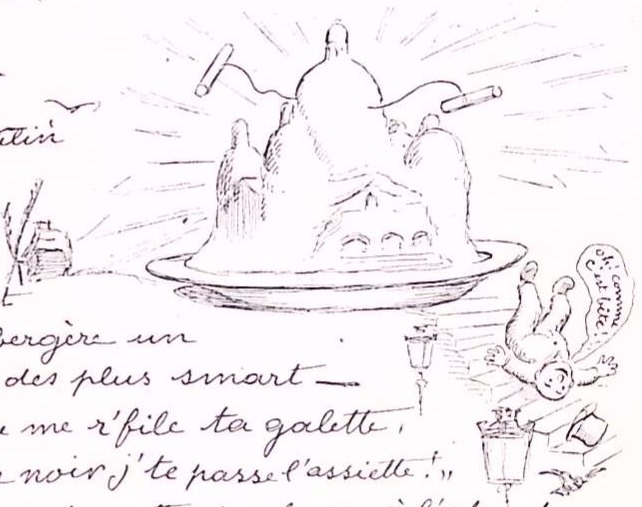 t
bergère un
des plus smart —
me r'file ta galette,
noir j'te passe l'assiette!"
oh! comme
c'est bête!